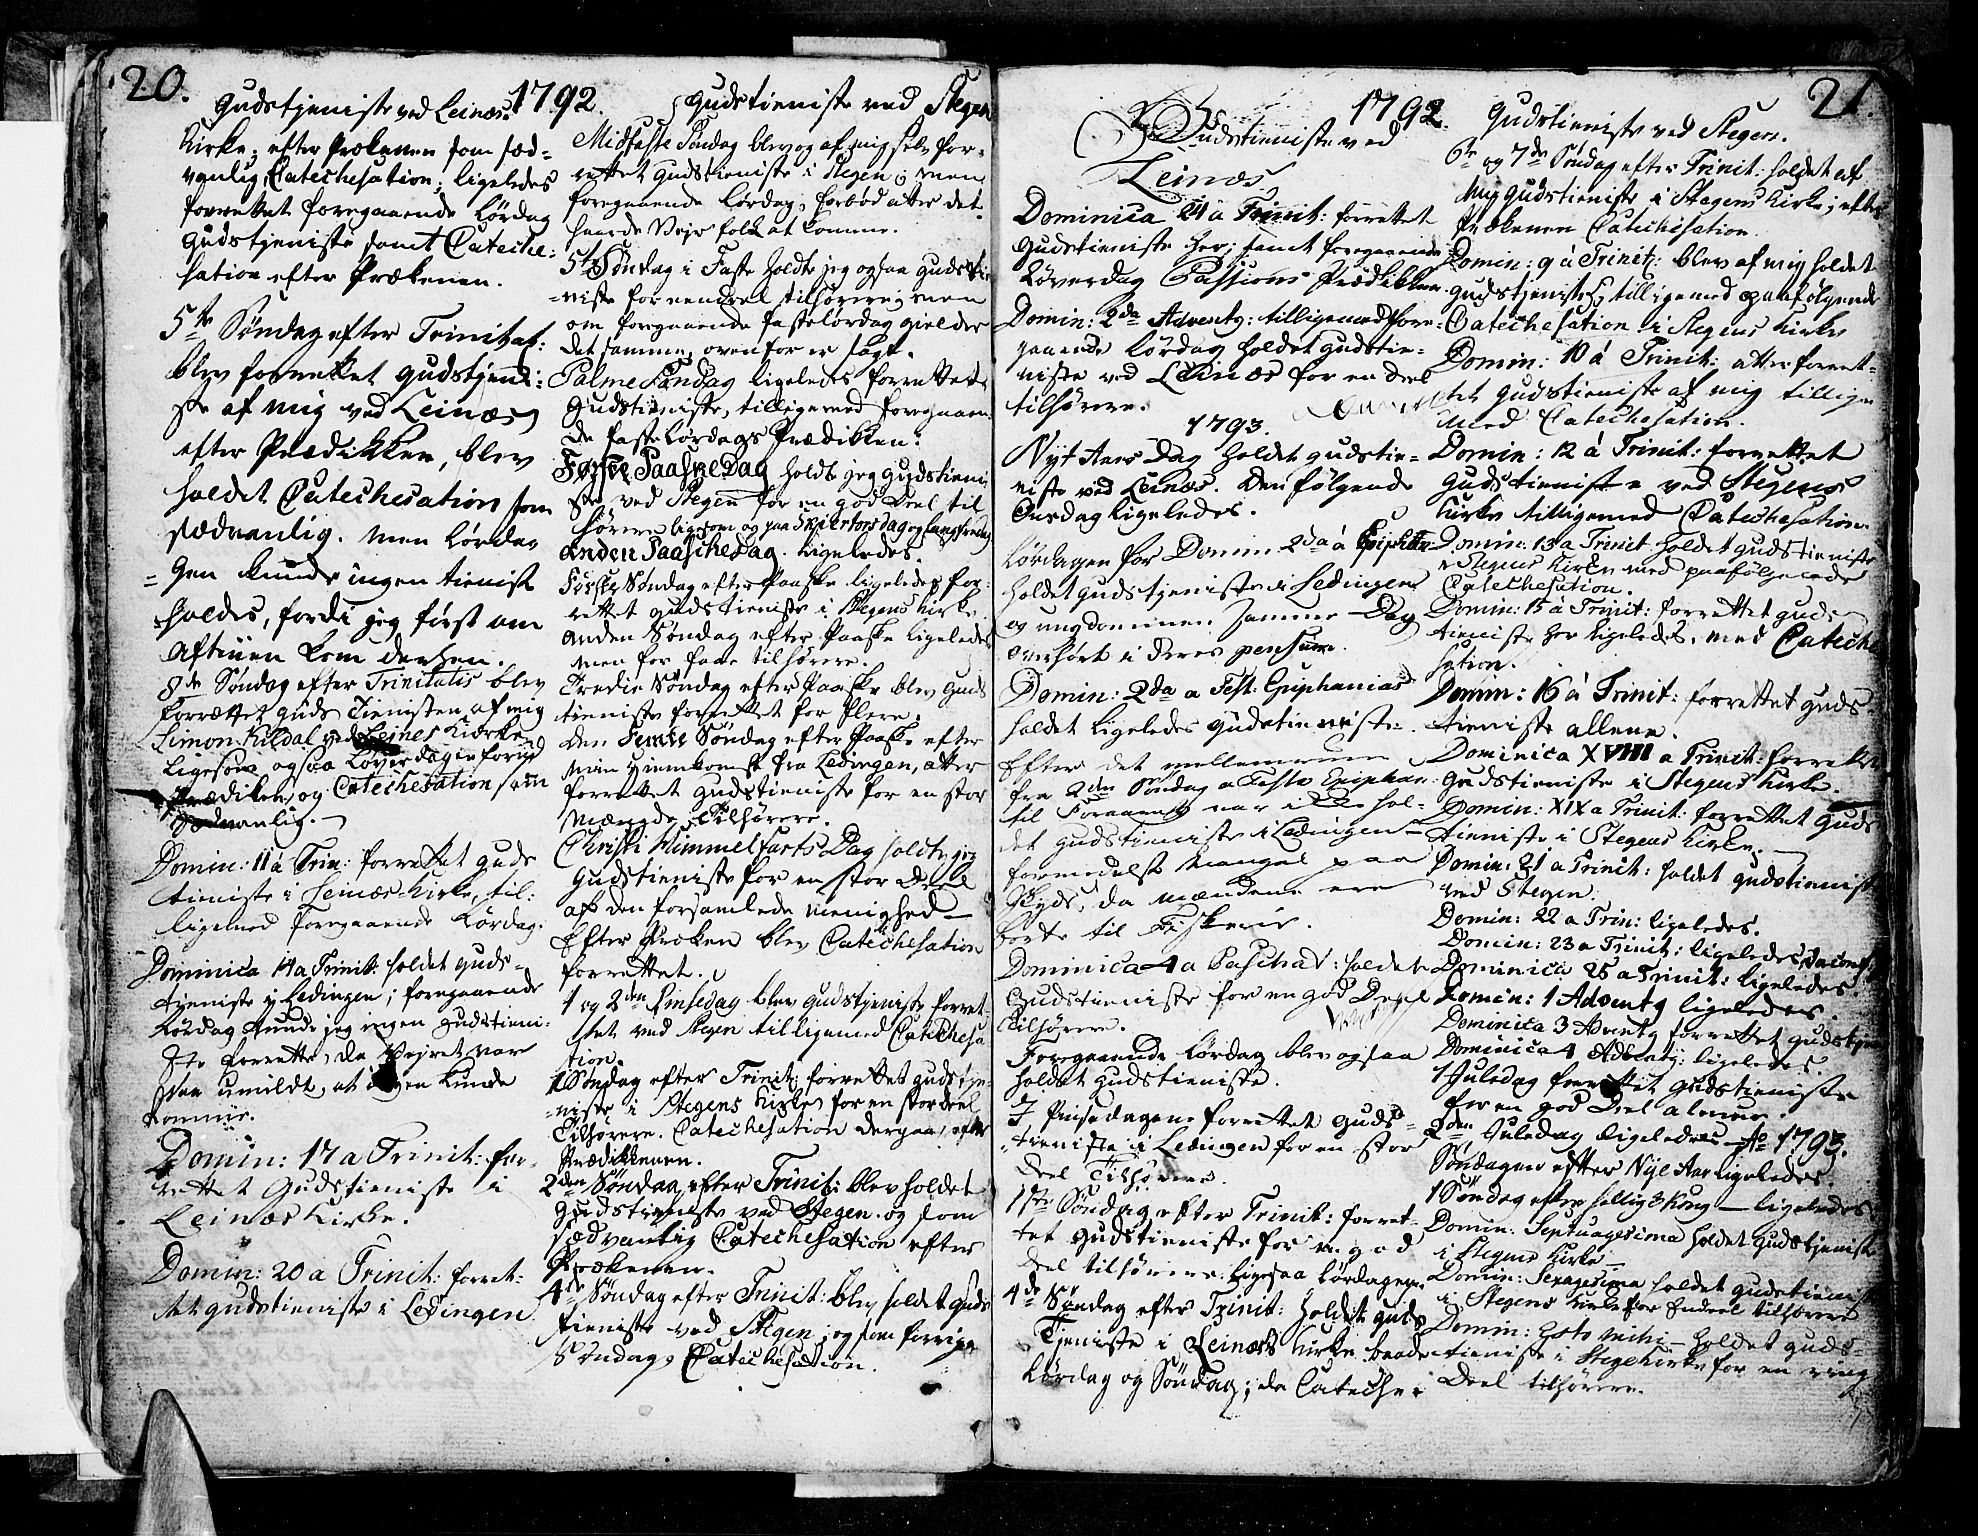 20.
1792.
Gudstjeniste ved Leinæs
Kirke; efter Prækenen som sæd-
vanlig Catechesation; ligeledes
forrettet foregaaende Lørdag
Gudstjeniste samt Cateche-
sation efter Prækenen.
5te Søndag efter Trinitat:
blev forrettet Gudstjeni-
ste af mig ved Leinæs,
efter Prædikken, blev
holdet Catechesation som
sædvanlig. Men Lørda-
gen kunde ingen tieniste
holdes, fordi jeg først om
Aftenen kom derhen.
8de Søndag efter Trinitatis blev
forrættet Guds Tienisten af mig
Simon Kildal ved Leines Kirke
Ligesom ogsaa Løverdagen forud
Prædiken, og Catechesation som
Sædvanlig.
Domin: 11 a Trin: forrettet Guds
tieniste i Leinæs Kirke, til-
ligemed foregaaende Lørdag.
Dominica 14 a Trinit: holdet Guds-
tjeniste i Ledingen; foregaaende
Lørdag kunde jeg ingen Gudstieni-
ste forrette, da Vejret var
saa umildt, at ingen kunde
komme.
Domin: 17 a Trinit: for-
rettet Gudstieniste i
Leinæs Kirke.
Domin: 20 a Trinit: forret-
tet Gudstieniste i Ledingen
Gudstieniste ved Stegen
Midfaste Søndag blev og af mig selv for-
rettet Gudstieniste i Stegen; men
foregaaende Lørdag forbød atter det
haarde Vejr folk at komme.
5te Søndag i Faste holdte jeg ogsaa Gudstie-
niste for en deel tilhørere; men
om foregaaende fastelørdag gielder
det samme, ovenfor er sagt.
Palme Søndag ligeledes forrettet
Gudstieniste, tilligemed foregaaen-
de fastelørdags Prædikken.
Første Paaske Dag holdte jeg Gudstieni-
ste ved Stegen for en god Deel til
hørere ligesom og paa Skiertorsdag og Langfredag
Anden Paasche Dag. ligeledes.
Første Søndag efter Paaske ligeledes for-
rettet Gudstieniste i Stegens Kirke
Anden Søndag efter Paaske ligeledes
men for faae tilhørere.
Tredie Søndag efter Paaske blev Guds
tieniste forrettet for flere.
Den Femte Søndag efter Paaske efter
min Hiemkomst fra Ledingen, atter
forrettet Gudstieniste for en stor
Mængde Tilhørere.
Christi Himmelfarts Dag holdte jeg
Gudstieniste for en stor Deel
af den forsamlede menighed
Efter Præken blev Catechesation
forrettet.
1 og 2den Pinsedag blev Gudstjeniste forret-
tet ved Stegen tilligemed Catechesa
tion.
1 Søndag efter Trinit: forrettet Gudstje-
niste i Stegens Kirke for en stor deel
Tilhørere. Catechesation derpaa, efter
Prædikkenen.
2den Søndag efter Trinit: blev holdet
Gudstieneste ved Stegen og som
sædvanlig Catechesation efter
Prækenen.
4de Søndag efter Trinit: blev holdet Guds
tieniste ved Stegen, og som forrige
Søndag, Catechesation.
21.
1792.
Gudstieniste ved
Leinæs.
Dominica 24 a Trinit: forrettet
Gudstieniste her; samt foregaaende
Løverdag Passions Prædikken.
Domin: 2da Advents: tilligemed fore-
gaaende Lørdag holdet Gudstie-
niste ved Leinæs for en deel
tilhørere.
1793.
Nyt Aars Dag holdet Gudstie-
niste ved Leinæs. Den følgende
Onsdag ligeledes.
Lørdagen før Domin. 2da a Epiphan
holdet Gudstjeniste i Ledingen
og ungdommen samme Dag
overhørt i deres pensum.
Domin: 2da a Fest: Epiphanias
holdet ligeledes Gudstieniste.
Efter det mellemrum
fra 2den Søndag a Festo Epiphan:
til Foraaret var ikke hol-
det Gudstieniste i Ledingen
formedelst Mangel paa
Skyds, da mændene ere
borte til Fiskerie.
Dominica 4 a Paschat: holdet
Gudstieniste for en god Deel
Tilhørere.
Foregaaende Lørdag blev ogsaa
holdet Gudstieniste.
I Pinsedagene forrettet Guds-
tieniste i Ledingen for en stor
deel Tilhørere.
1ste Søndag efter Trinit: forret-
tet Gudstieniste for en god
deel tilhørere. ligesaa Lørdagen.
4de Søndag efter Trinit: holdet Guds
Tjeniste i Leinæs Kirke baade
Lørdag og Søndag; da Cateche:
Gudstieniste ved Stegen.
6te og 7de Søndag efter Trinit: holdet af
mig Gudstieniste i Stegens Kirke; efter
Prækenen Catechisation.
Domin: 9 á Trinit: blev af mig holdet
Gudstjeniste tilligemed paafølgende
Catechesation i Stegens Kirke
Domin: 10 á Trinit: atter forret-
tet Gudstieniste af mig tillige
med Catechesation.
Domin: 12 á Trinit: forrettet
Gudstieniste ved Stegens
Kirke tilligemed Catechesation
Domin: 13 a Trinit. holdet Gudstieniste
i Stegens Kirke med paafølgende
Catechesation.
Domin: 15 a Trinit: forrettet Guds
tieniste her ligeledes, med Cateche
sation.
Domin: 16 á Trinit: forrettet Guds-
tieniste allene.
Dominica XVIII a Trinit: forrettet
Gudstieniste i Stegens Kirke.
Domin: XIX a Trinit: forrettet Guds
tieniste i Stegens Kirke.
Domin: 21 a Trinit: holdet Gudstieniste
ved Stegen.
Domin: 22 a Trin: ligeledes.
Domin: 23 a Trinit: ligeledes,
Dominica 25 a Trinit: ligeledes.
Domin: 1 Advents ligeledes.
Dominica 3 Advents forrettet Gudstjen
Dominica 4 Advents: ligeledes.
1 Juledag forrettet Gudstieniste
for en god Deel almue.
2den Juledag ligeledes Ao 1793.
Søndagen efter Nye Aar ligeledes.
1 Søndag efter hellig 3 Kong — ligeledes
Domin: Septuagesima holdet Gudstjeniste
i Stegens Kirke
Domin: Sexagesima holdet Gudstienist
i Stegens Kirke for Endeel tilhørere
Domin: Esto mihi — holdet Guds-
tieniste i Stege Kirke for en ring
Deel tilhørere.